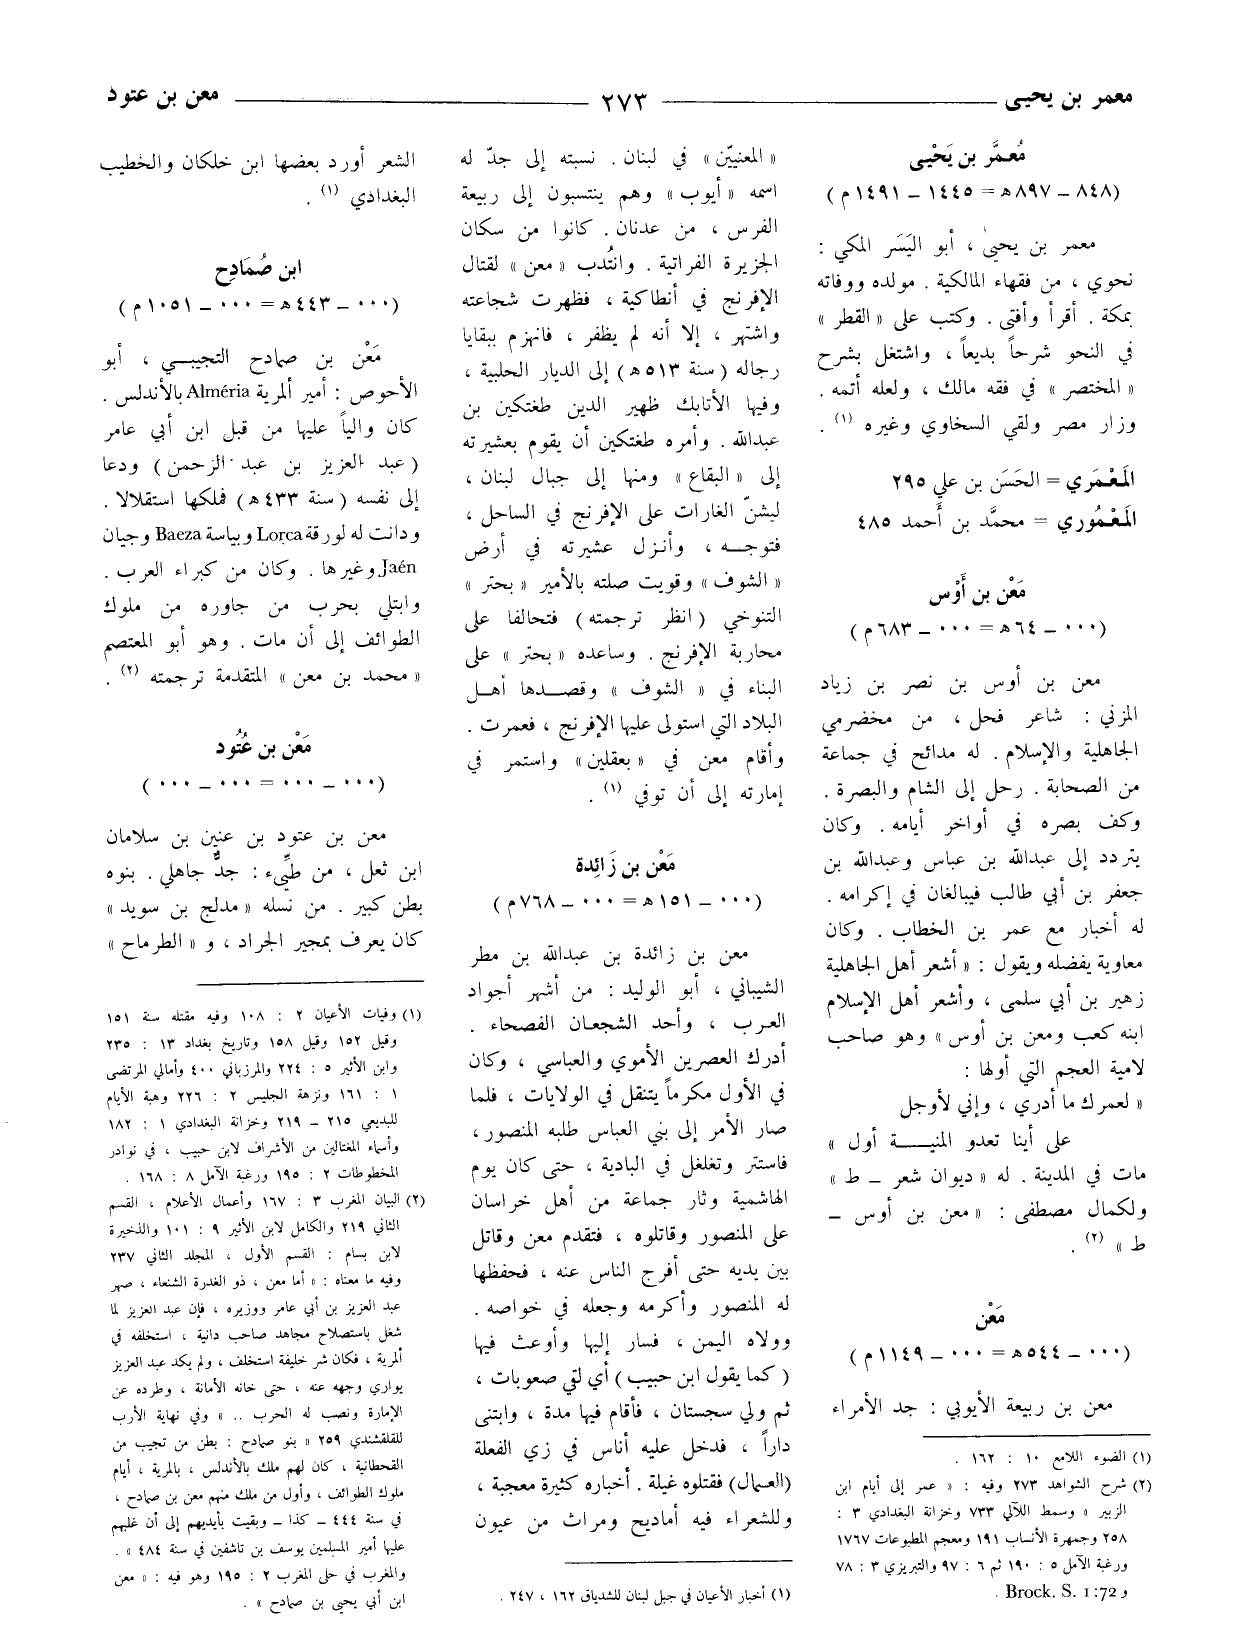 معمر بن يحيى ٢٧٣ معن بن عتود
مُعمَّر بن يَحْيى
(٨٤٨ – ٨٩٧ هـ = ١٤٤٥ – ١٤٩١ م)
معمر بن يحيىٰ ، أبو اليَسَر المكي :
نحوي ، من فقهاء المالكية . مولده ووفاته
بمكة . أقرأ وأفتى . وكتب على « القطر »
في النحو شرحاً بديعاً ، واشتغل بشرح
« المختصر » في فقه مالك ، ولعله أتمه .
وزار مصر ولقي السخاوي وغيره (١) .
المَعْمَري = الحَسَن بن علي ٢٩٥
المَعْمُوري = محمَّد بن أَحمد ٤٨٥
مَعْن بن أَوْس
(٠٠٠ – ٦٤ هـ = ٠٠٠ – ٦٨٣ م)
معن بن أوس بن نصر بن زياد
المزني : شاعر فحل ، من مخضرمي
الجاهلية والإسلام . له مدائح في جماعة
من الصحابة . رحل إلى الشام والبصرة .
وكف بصره في أواخر أيامه . وكان
يتردد إلى عبدالله بن عباس وعبدالله بن
جعفر بن أبي طالب فيبالغان في إكرامه .
له أخبار مع عمر بن الخطاب . وكان
معاوية يفضله ويقول : « أشعر أهل الجاهلية
زهير بن أبي سلمى ، وأشعر أهل الإسلام
ابنه كعب ومعن بن أوس » وهو صاحب
لامية العجم التي أولها :
« لعمرك ما أدري ، وإني لأوجل
على أينا تعدو المنيـــة أول »
مات في المدينة . له « ديوان شعر – ط »
ولكمال مصطفى : « معن بن أوس –
ط » (٢) .
مَعْن
(٠٠٠ – ٥٤٤ هـ = ٠٠٠ – ١١٤٩ م)
معن بن ربيعة الأيوبي : جد الأمراء
(١) الضوء اللامع ١٠ : ١٦٢ .
(٢) شرح الشواهد ٢٧٣ وفيه : « عمر إلى أيام ابن
الزبير » وسمط اللآلي ٧٣٣ وخزانة البغدادي ٣ :
٢٥٨ وجمهرة الأنساب ١٩١ ومعجم المطبوعات ١٧٦٧
ورغبة الآمل ٥ : ١٩٠ ثم ٦ : ٩٧ والتبريزي ٣ : ٧٨
و Brock. S. 1:72 .
« المعنيّين » في لبنان . نسبته إلى جدّ له
اسمه « أيوب » وهم ينتسبون إلى ربيعة
الفرس ، من عدنان . كانوا من سكان
الجزيرة الفراتية . وانتُدب « معن » لقتال
الإفرنج في أنطاكية ، فظهرت شجاعته
واشتهر ، إلا أنه لم يظفر ، فانهزم ببقايا
رجاله ( سنة ٥١٣ هـ ) إلى الديار الحلبية ،
وفيها الأتابك ظهير الدين طغتكين بن
عبدالله . وأمره طغتكين أن يقوم بعشيرته
إلى « البقاع » ومنها إلى جبال لبنان ،
ليشنّ الغارات على الإفرنج في الساحل ،
فتوجـه ، وأنـزل عشيرته في أرض
« الشوف » وقويت صلته بالأمير « بحتر »
التنوخي ( انظر ترجمته ) فتحالفا على
محاربة الإفرنج . وساعده « بحتر » على
البناء في « الشوف » وقصـدها أهـل
البلاد التي استولى عليها الإفرنج ، فعمرت .
وأقام معن في « بعقلين » واستمر في
إمارته إلى أن توفي (١) .
مَعْن بن زَائِدة
(٠٠٠ – ١٥١ هـ = ٠٠٠ – ٧٦٨ م)
معن بن زائدة بن عبدالله بن مطر
الشيباني ، أبو الوليد : من أشهر أجواد
العرب ، وأحد الشجعان الفصحاء .
أدرك العصرين الأموي والعباسي ، وكان
في الأول مكرماً يتنقل في الولايات ، فلما
صار الأمر إلى بني العباس طلبه المنصور ،
فاستتر وتغلغل في البادية ، حتى كان يوم
الهاشمية وثار جماعة من أهل خراسان
على المنصور وقاتلوه ، فتقدم معن وقاتل
بين يديه حتى أفرج الناس عنه ، فحفظها
له المنصور وأكرمه وجعله في خواصه .
وولاه اليمن ، فسار إليها وأوعث فيها
( كما يقول ابن حبيب ) أي لقي صعوبات ،
ثم ولي سجستان ، فأقام فيها مدة ، وابتنى
داراً ، فدخل عليه أناس في زي الفعلة
(العمال) فقتلوه غيلة . أخباره كثيرة معجبة ،
وللشعراء فيه أماديح ومراث من عيون
(١) أخبار الأعيان في جبل لبنان للشدياق ١٦٢ ، ٢٤٧ .
الشعر أورد بعضها ابن خلكان والخطيب
البغدادي (١) .
ابن صُمَادِح
(٠٠٠ – ٤٤٣ هـ = ٠٠٠ – ١٠٥١ م)
مَعْن بن صمادح التجيبـي ، أبو
الأحوص : أمير ألمرية Alméria بالأندلس .
كان والياً عليها من قبل ابن أبي عامر
( عبد العزيز بن عبد الرحمن ) ودعا
إلى نفسه ( سنة ٤٣٣ هـ ) فملكها استقلالا .
ودانت له لورقة Lorca وبياسة Baeza وجيان
Jaén وغيرها . وكان من كبراء العرب .
وابتلي بحرب من جاوره من ملوك
الطوائف إلى أن مات . وهو أبو المعتصم
« محمد بن معن » المتقدمة ترجمته (٢) .
مَعْن بن عَتُود
(٠٠٠ – ٠٠٠ = ٠٠٠ – ٠٠٠ )
معن بن عتود بن عنين بن سلامان
ابن ثعل ، من طيِّيء : جدٌّ جاهلي . بنوه
بطن كبير . من نسله « مدلج بن سويد »
كان يعرف بمجير الجراد ، و « الطرماح »
(١) وفيات الأعيان ٢ : ١٠٨ وفيه مقتله سنة ١٥١
وقيل ١٥٢ وقيل ١٥٨ وتاريخ بغداد ١٣ : ٢٣٥
وابن الأثير ٥ : ٢٢٤ والمرزباني ٤٠٠ وأمالي المرتضى
١ : ١٦١ ونزهة الجليس ٢ : ٢٢٦ وهبة الأيام
للبديعي ٢١٥ – ٢١٩ وخزانة البغدادي ١ : ١٨٢
وأسماء المغتالين من الأشراف لابن حبيب ، في نوادر
المخطوطات ٢ : ١٩٥ ورغبة الآمل ٨ : ١٦٨ .
(٢) البيان المغرب ٣ : ١٦٧ وأعمال الأعلام ، القسم
الثاني ٢١٩ والكامل لابن الأثير ٩ : ١٠١ والذخيرة
لابن بسام : القسم الأول ، المجلد الثاني ٢٣٧
وفيه ما معناه : « أما معن ، ذو الغدرة الشنعاء ، صهر
عبد العزيز بن أبي عامر ووزيره ، فإن عبد العزيز لما
شغل باستصلاح مجاهد صاحب دانية ، استخلفه في
ألمرية ، فكان شر خليفة استخلف ، ولم يكد عبد العزيز
يواري وجهه عنه ، حتى خانه الأمانة ، وطرده عن
الإمارة ونصب له الحرب .. » وفي نهاية الأرب
للقلقشندي ٢٥٩ « بنو صمادح : بطن من تجيب من
القحطانية ، كان لهم ملك بالأندلس ، بالمرية ، أيام
ملوك الطوائف ، وأول من ملك منهم معن بن صمادح ،
في سنة ٤٤٤ – كذا – وبقيت بأيديهم إلى أن غلبهم
عليها أمير المسلمين يوسف بن تاشفين في سنة ٤٨٤ » .
والمغرب في حلى المغرب ٢ : ١٩٥ وهو فيه : « معن
ابن أبي يحيى بن صمادح » .